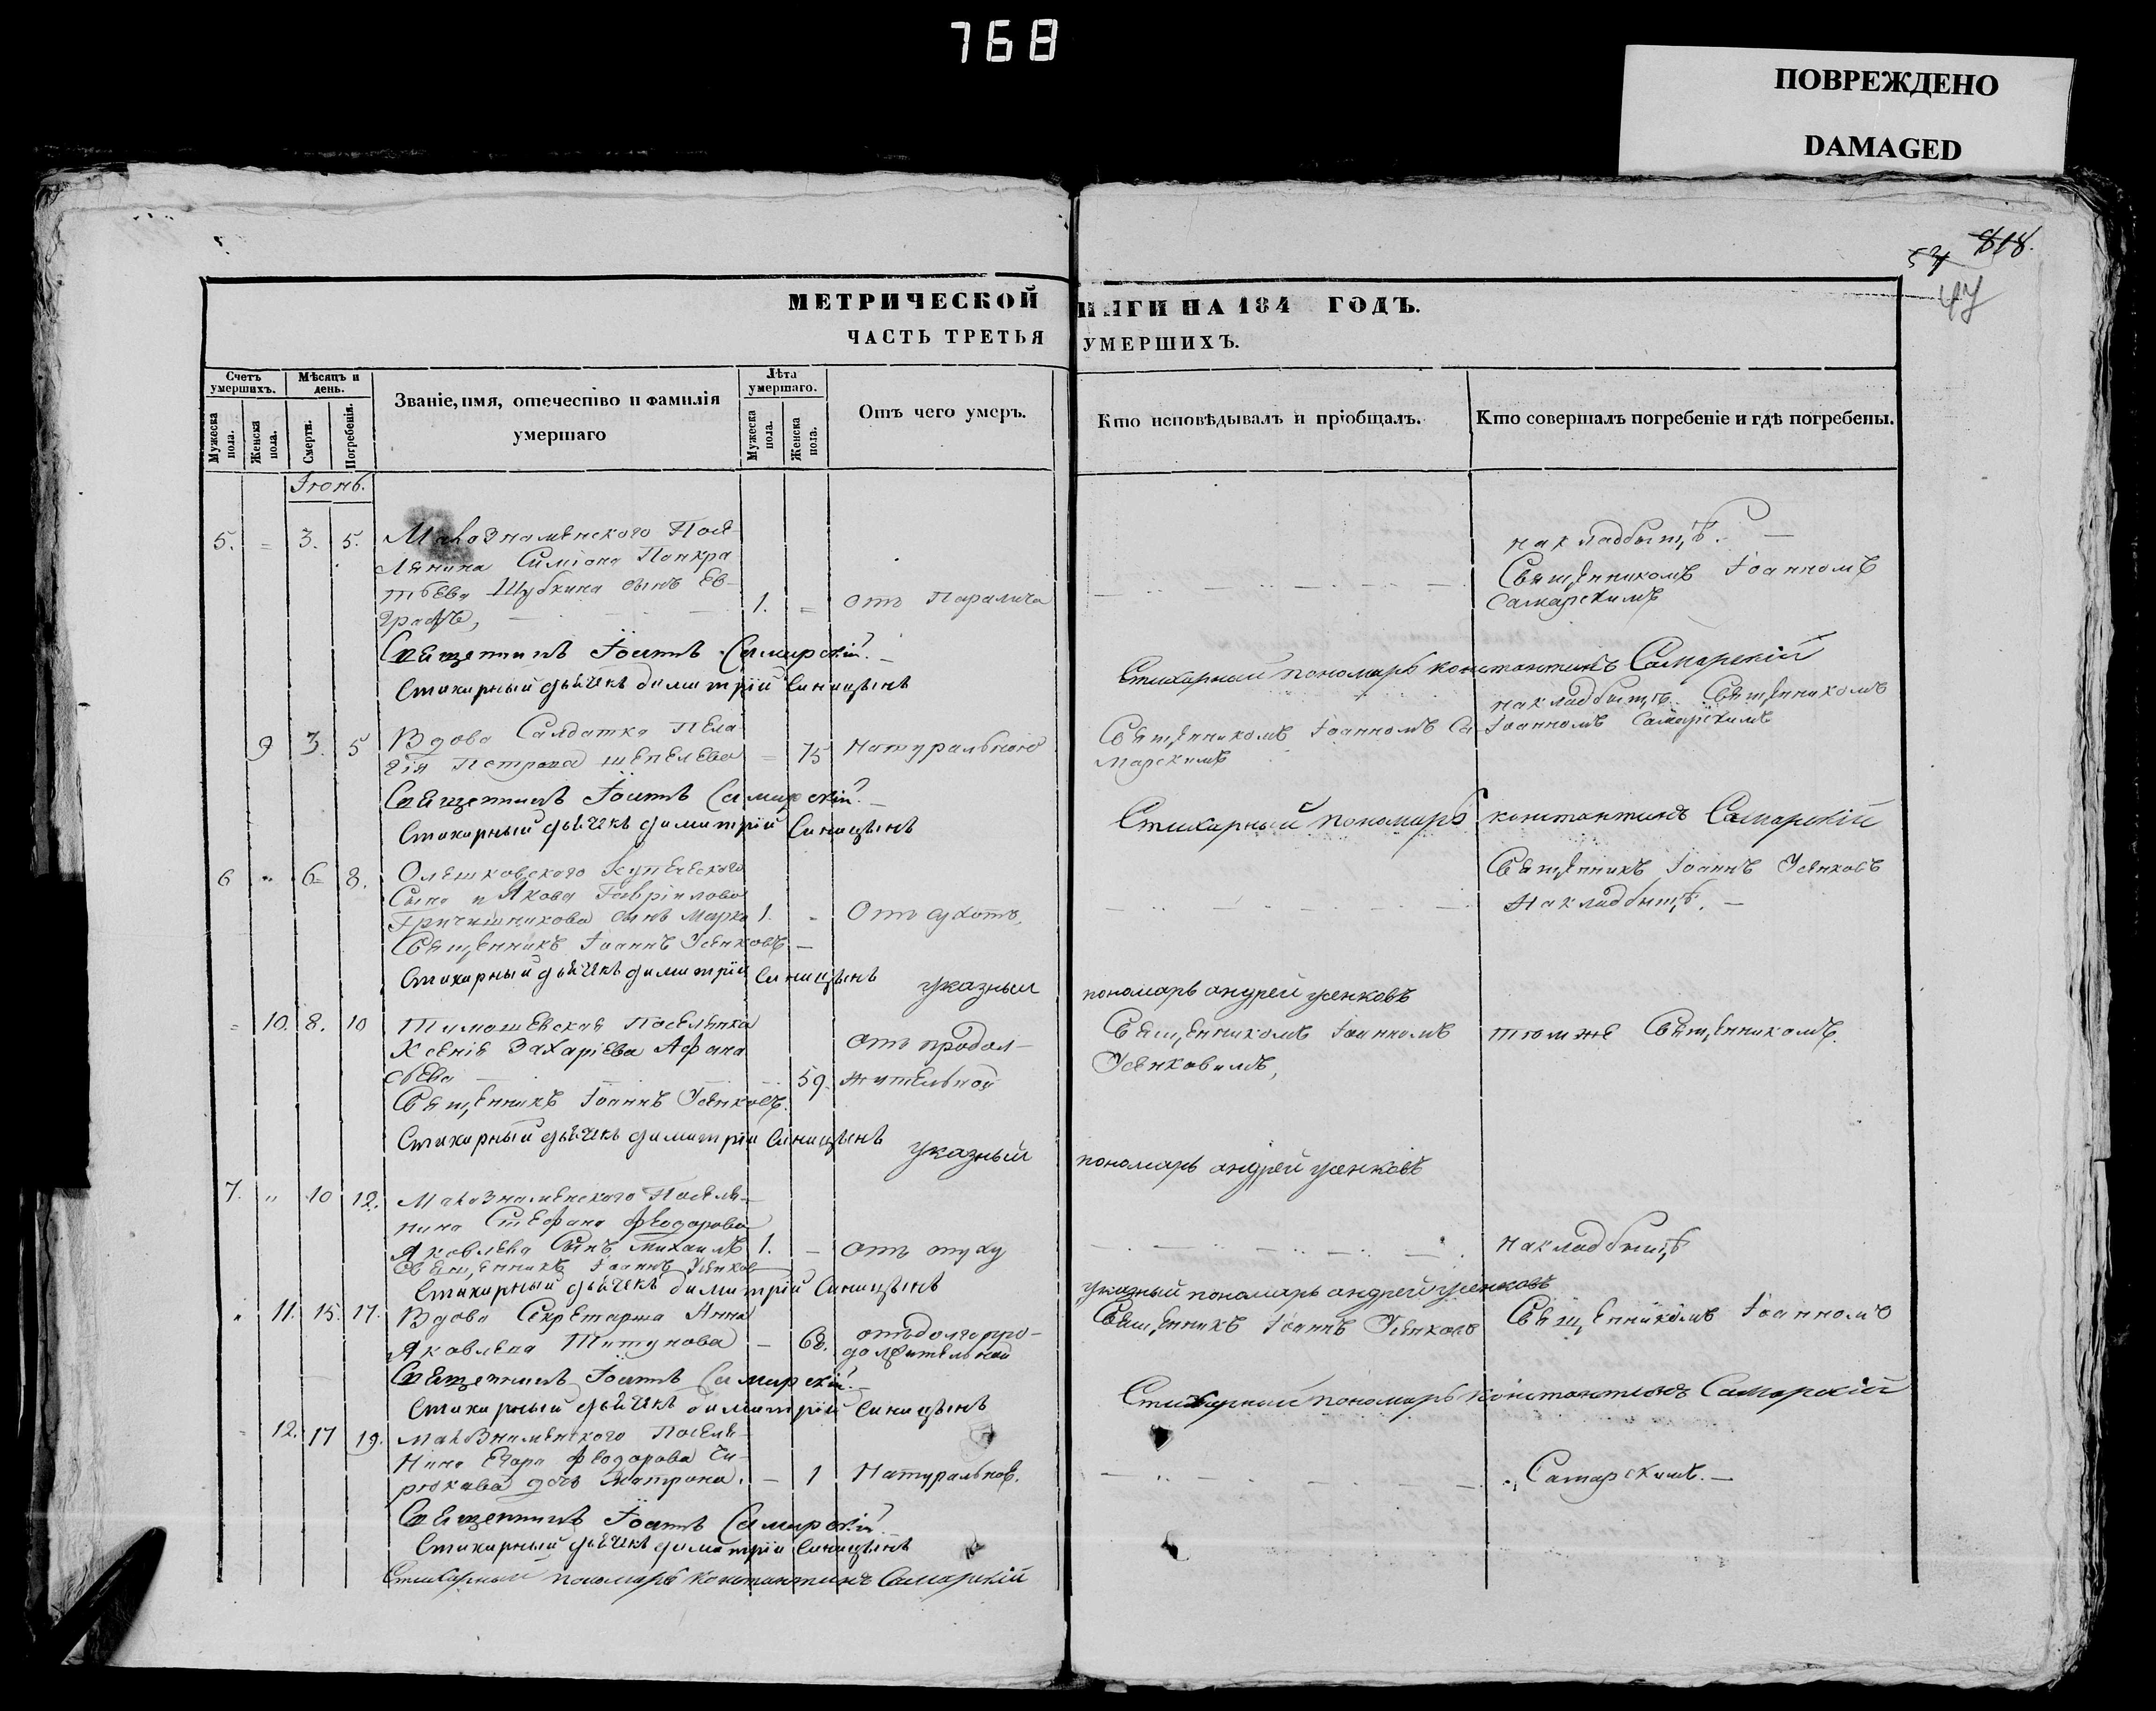 768
ПОВРЕЖДЕНО
DAMAGED
818.
МЕТРИЧЕСКОЙ
НИГИ НА 184 ГОДЪ.
ЧАСТЬ ТРЕТЬЯ
УМЕРШИХЪ.
Счетъ умершихъ.
Мѣсяцъ и день.
Званіе, имя, отечество и фамилія умершаго
Лѣта умершаго.
Отъ чего умеръ.
Кто исповѣдывалъ и пріобщалъ.
Кто совершалъ погребеніе и гдѣ погребены.
Мужеска пола.
Женска пола.
Смерти.
Погребенія.
Мужеска пола.
Женска пола.
Іюнь.
5. = 3. 5. Малознаменского Посе
лянина Симіона Панкра
тьева Шубкина сынъ Ев-
графъ, 1. = Отъ Паралича
на кладбищѣ.
Священникомъ Іоанномъ
Самарскимъ
Священникъ Іоаннъ Самарскій.
Стихарный дьячекъ Димитрій Синицынъ
Стихарный пономарь константинъ Самарскій
9 3. 5 Вдова Салдатка Пела
гія Петрова Шепелева = 75 Натурально
Священникомъ Іоанномъ Са
марскимъ
на кладбищѣ Священникомъ
Іоанномъ Самарскимъ
Священникъ Іоаннъ Самарскій.
Стихарный дьячекъ димитрій Синицынъ
Стихарный пономарь константинъ Самарскій
6 " 6 8. Олешковского Купеческого
Сына Якова Гавріилова
сынъ Марко 1. Отъ сухотъ.
Священникъ Іоаннъ Усенковъ
на кладбищѣ.
Священникъ Іоаннъ Усенковъ
Стихарный дьячекъ димитрій Синицынъ
указный пономарь андрей усенковъ
= 10. 8. 10 Тимошевская Поселянка
Ксенія Захаріева Афана
сьева 59. Отъ продол-
жительной
Священникомъ Іоанномъ
Усенковимъ,
томже Священникомъ.
Священникъ Іоаннъ Усенковъ.
Стихарный дьячекъ димитрій Синицынъ
указный пономарь андрей усенковъ
7. " 10 12. Малознаменского Поселя-
нина Стефана Феодорова
Яковлева Сынъ Михаилъ 1. – Отъ
на кладбищѣ
Священникъ Іоаннъ Усенковъ
Стихарный дьячекъ димитрій Синицынъ
указный пономарь андрей усенковъ
" 11. 15. 17. Вдова Секретарша Анна
Яковлева Титунова – 68. отъ долгопро-
должительной
Священникъ Іоаннъ Усенковъ
Священникомъ Іоанномъ
Священникъ Іоаннъ Самарскій.
Стихарный дьячекъ димитрій Синицынъ
Стихарный пономарь константинъ Самарскій
12. 17 19. Малознаменского Поселя-
нина Егора Феодорова Чи-
рюкова дочь Матрона. – 1 Натурально.
Самарскимъ.
Священникъ Іоаннъ Самарскій.
Стихарный дьячекъ димитрій Синицынъ
Стихарный пономарь константинъ Самарскій